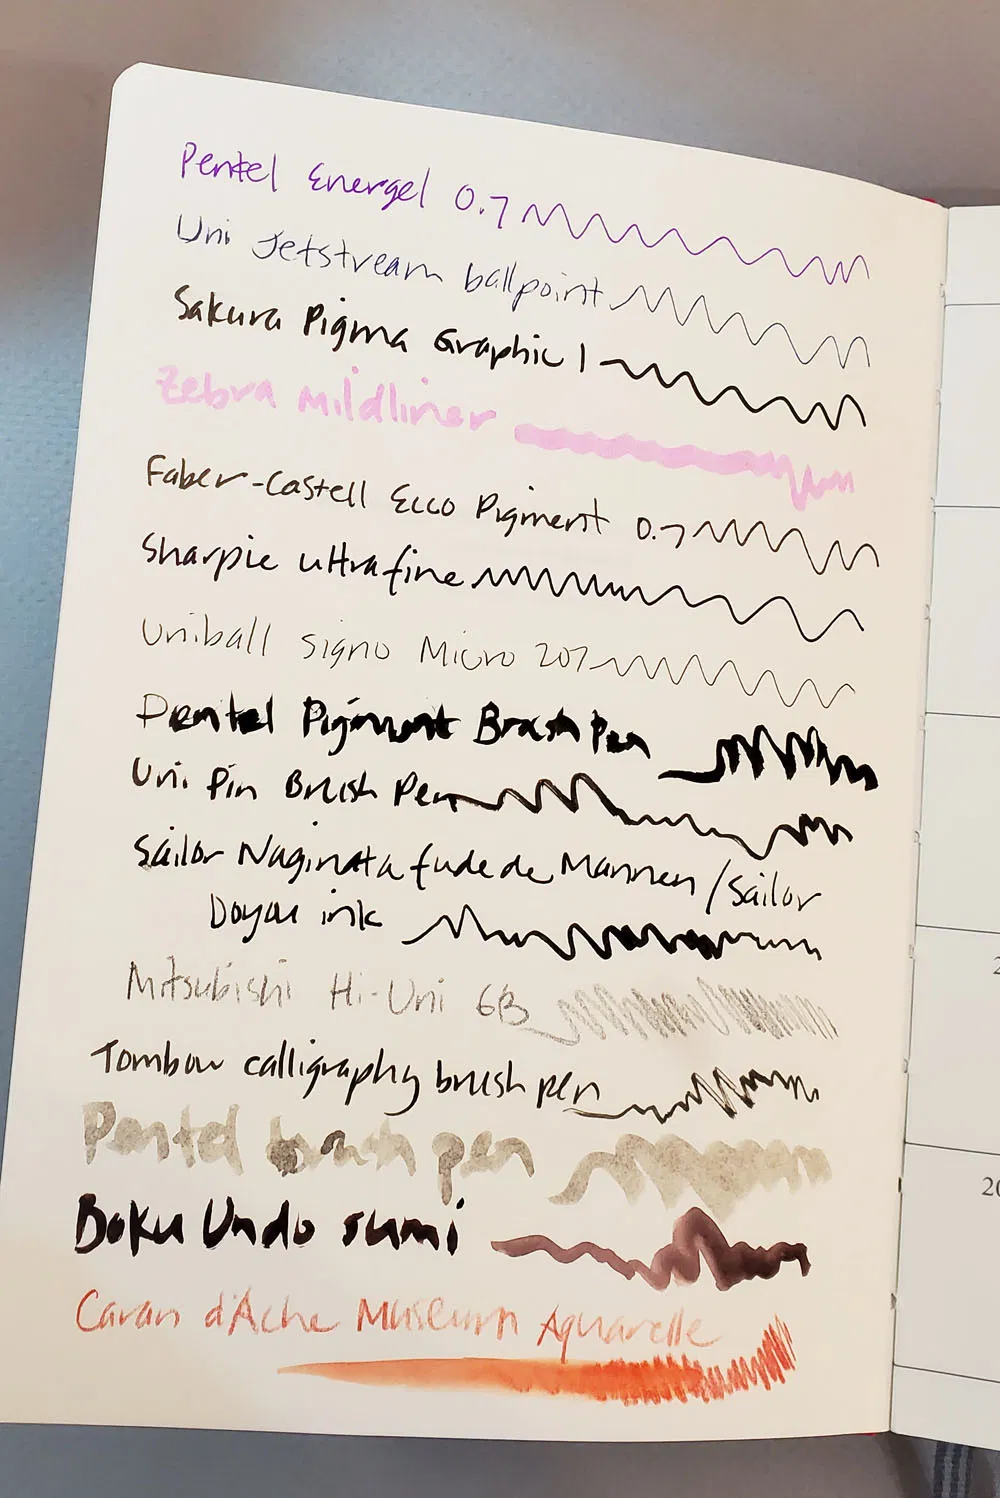 Pentel Energel 0.7
Uni Jetstream ballpoint
Sakura Pigma Graphic 1
Zebra Mildliner
Faber-Castell Ecco Pigment 0.7
Sharpie ultrafine
Uniball signo Micro 207
Pentel Pigment Brush Pen
Uni Pin Brush Pen
Sailor Naginata fude de Mannen / Sailor
Doyou ink
Mitsubishi Hi-Uni 6B
Tombow calligraphy brush pen
Pentel brush pen
Boku Undo sumi
Caran d'Ache Museum Aquarelle
2
20